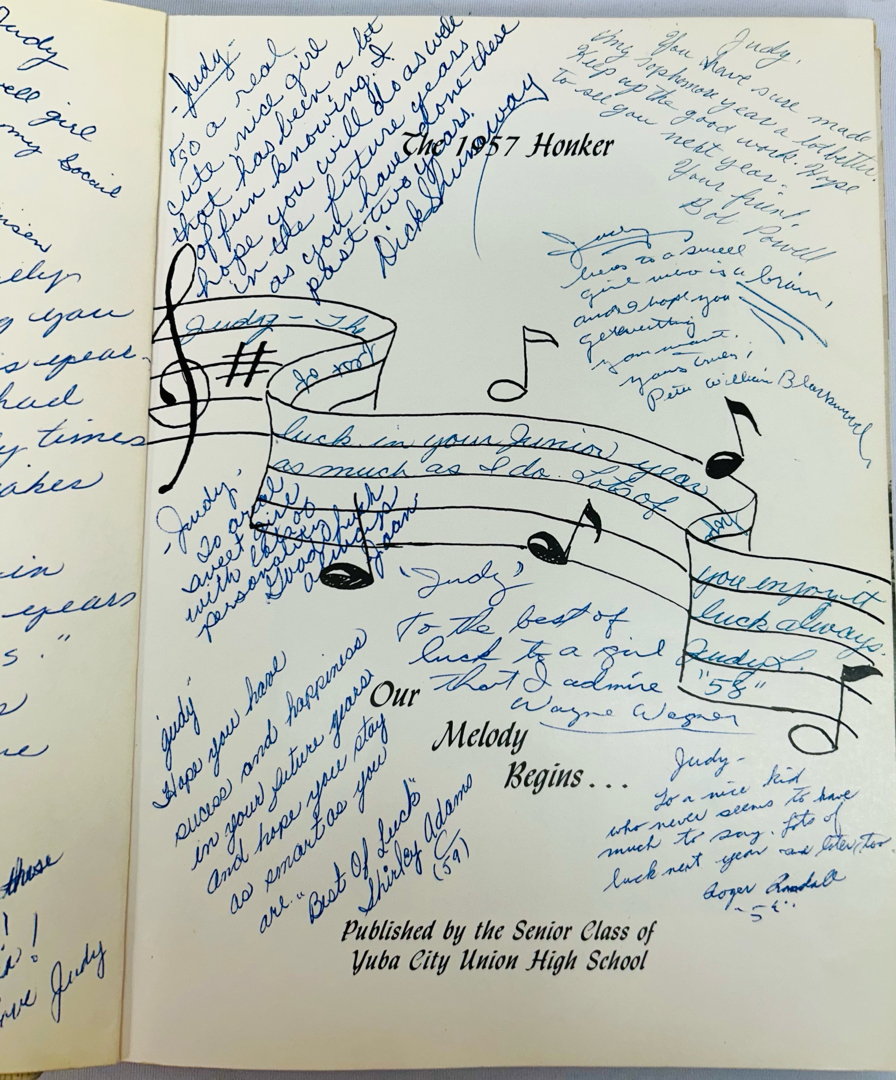 Judy
girl
my
you
had
times
in
years
these
Judy
The 1957 Honker
-Judy-
To a real
cute, nice girl
that has been a lot
of fun knowing. I
hope you will do as well
in the future years
as you have done these
past two years.
Dick Shumaway
Judy,
You have sure made
my sophomore year a lot better.
Keep up the good work. Hope
to see you next year.
Your friend
Bob Powell
Judy
heres to a swell
girl who is a brain,
and I hope you
get everything
you want.
yours truly,
Pete William Blackwell
Judy - The
best
luck in your Junior year
as much as I do. Lots of
you enjoy it
luck always.
Judy L.
"58"
-Judy,
To a real
sweet girl
with lots of
personality
Good luck
always
Joan
'Judy'
To the best of
luck to a girl
that I admire
Wayne Wagner
Our
Melody
Begins...
"Judy"
Hope you have
sucess and happiness
in your future years
and hope you stay
as smart as you
are."
Best Of Luck"
Shirley Adams
(59)
Judy-
To a nice kid
who never seems to have
much to say. Lots of
luck next year and later, too.
Roger
Published by the Senior Class of
Yuba City Union High School